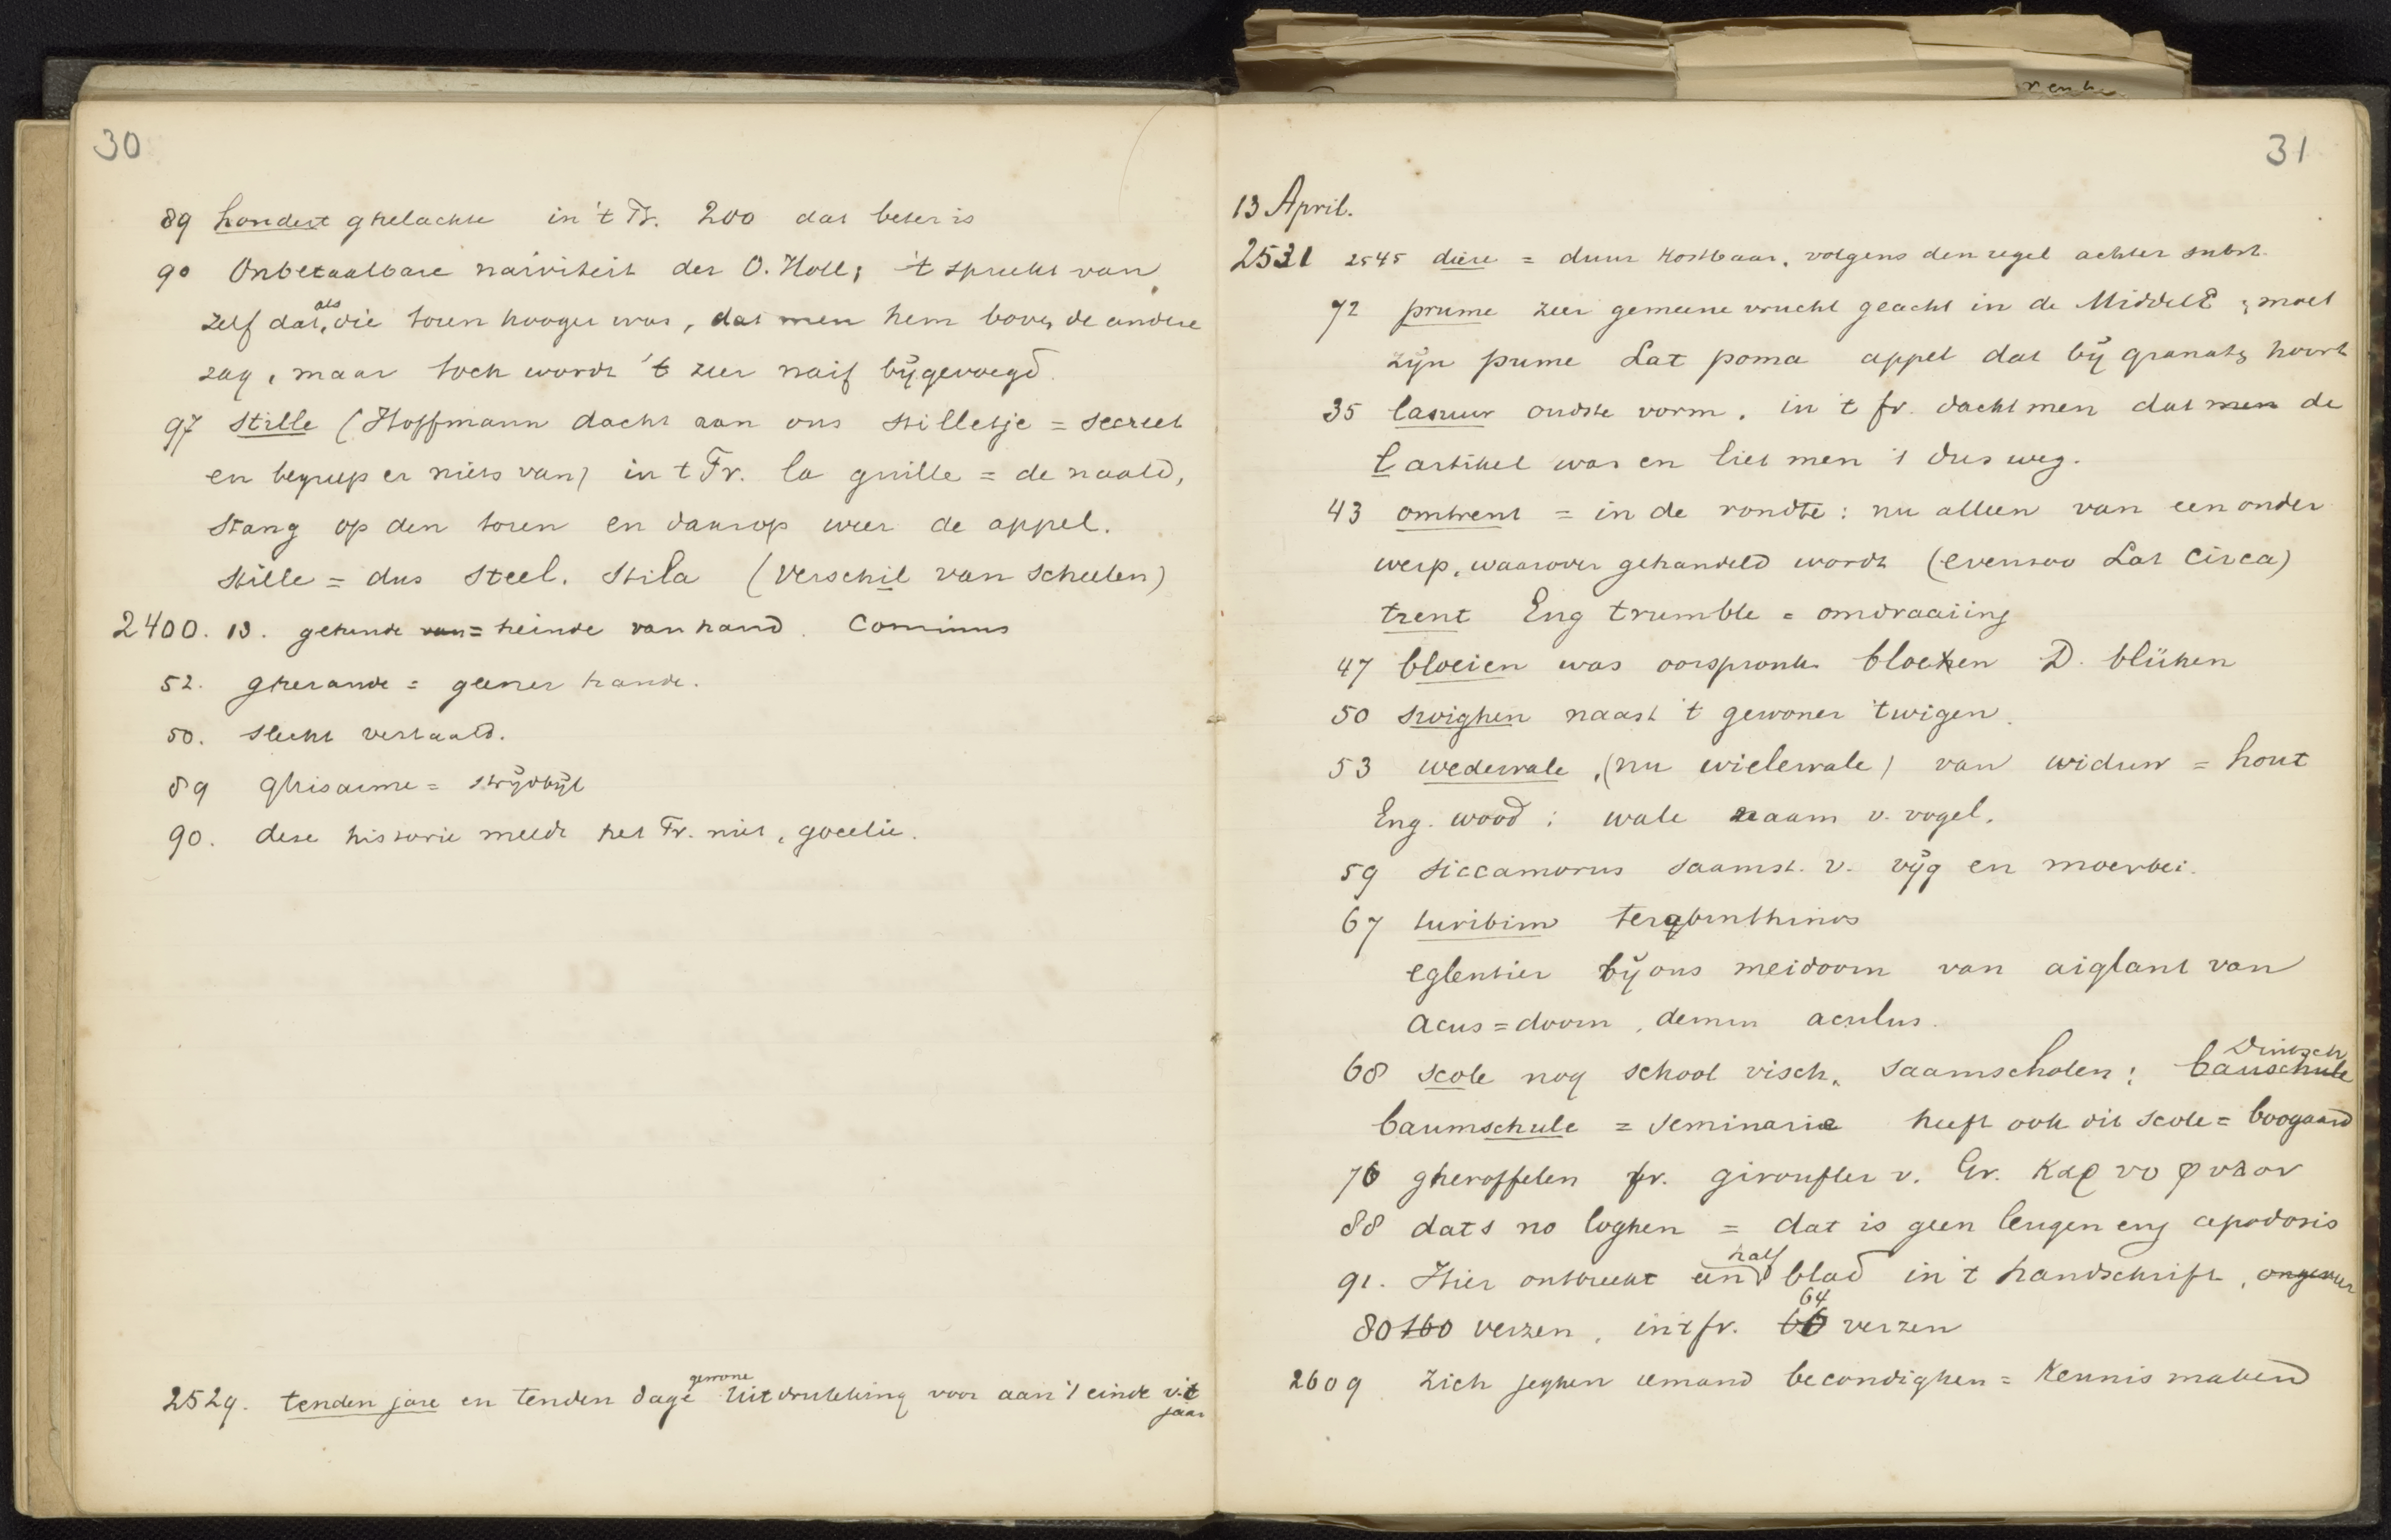 30
89 hondert ghelachte in 't Fr. 200 dat beter is
90 Onbetaalbare naïviteit der O. Holl; 't spreekt van
zelf dat, als die toren hooger was, dat men hem boven de andere
zag, maar toch wordt 't zeer naïf bijgevoegd.
97 stille (Hoffmann dacht aan ons stilletje = secreet
en begreep er niets van) in t Fr. la guille = de naald,
stang op den toren en daarop weer de appel.
stille = dus steel. stila (verschil van scheelen)
2400. 13. gehende van = heinde van hand. Cominus
52. gherande = geener hande.
50. slecht vertaald.
89 ghisarme = strijdbijl
90. dese historie meldt het Fr. niet,
2529. tenden jare en tenden dage gewone uitdrukking voor aan 't einde v. 't
jaar
31
13 April.
2531 2545 diere = duur kostbaar, volgens den regel achter subst.
72 prume zeer gemeene vrucht geacht in de MiddelE; moet
zijn pume Lat poma appel dat bij granats hoort
35 lasuur oudste vorm, in 't fr. dacht men dat men de
l artikel was en liet men 't dus weg.
43 omtrent = in de rondte: nu alleen van een onder
werp, waarover gehandeld wordt (evenzoo Lat circa)
trent Eng trumble = omdraaiing
47 bloeien was oorspronk. bloehen D. blühen
50 swighen naast 't gewoner twigen.
53 wedewale, (nu wielewale) van widuw = hout
Eng. wood; wale naam v. vogel.
59 siccamorus saamst. v. vijg en moerbei.
67 turibim terebinthinos
eglentier bij ons meidoorn van aiglant van
acus = doorn, demin aculus.
68 scole nog school visch, saamscholen; Duitsch bauschule
baumschule = seminarie heeft ook dit scole = boogaard
76 gheroffelen fr. giroufler v. Gr. καρυοφυλλον
88 dats no loghen = dat is geen leugen apodosis
91. Hier ontbreekt een half blad in 't handschrift, ongeveer
80 160 verzen, in 't fr. 66 64 verzen
2609 Zich jeghen iemand becondighen = Kennis makend